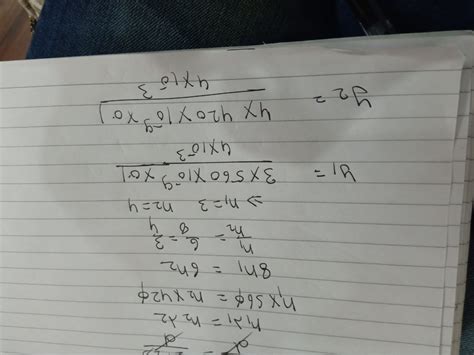 n₁λ₁ = n₂λ₂
n₁ × 560 = n₂ × 420
8n₁ = 6n₂
n₁/n₂ = 6/8 = 3/4
⇒ n₁ = 3 n₂ = 4
y₁ = 3 × 560 × 10⁻⁹ × D / 4 × 10⁻³
y₂ = 4 × 420 × 10⁻⁹ × D / 4 × 10⁻³